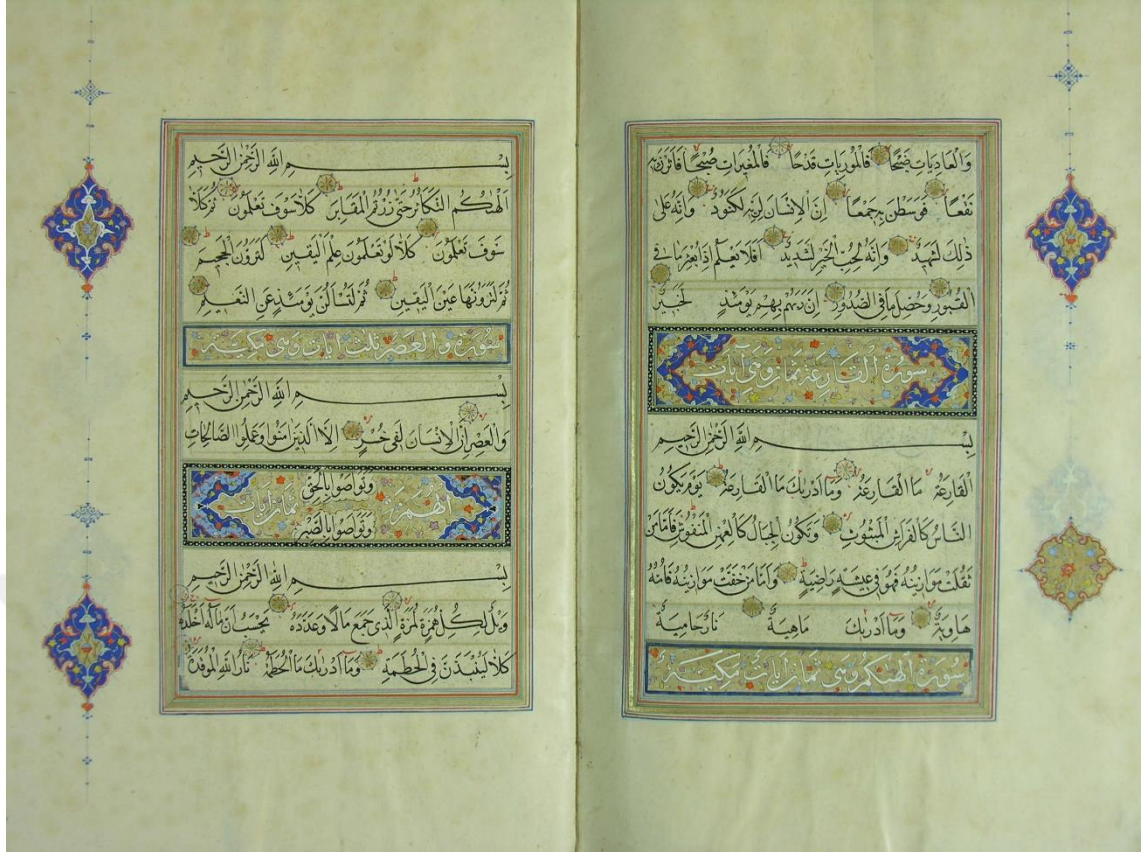 وَالْعَادِيَاتِ ضَبْحًا فَالْمُورِيَاتِ قَدْحًا فَالْمُغِيرَاتِ صُبْحًا فَأَثَرْنَ بِهِ
نَقْعًا فَوَسَطْنَ بِهِ جَمْعًا إِنَّ الْإِنْسَانَ لِرَبِّهِ لَكَنُودٌ وَإِنَّهُ عَلَى
ذَلِكَ لَشَهِيدٌ وَإِنَّهُ لِحُبِّ الْخَيْرِ لَشَدِيدٌ أَفَلَا يَعْلَمُ إِذَا بُعْثِرَ مَا فِي
الْقُبُورِ وَحُصِّلَ مَا فِي الصُّدُورِ إِنَّ رَبَّهُمْ بِهِمْ يَوْمَئِذٍ لَخَبِيرٌ
سورة القارعة ثمان وهى آيات
بِسْمِ اللَّهِ الرَّحْمَنِ الرَّحِيمِ
الْقَارِعَةُ مَا الْقَارِعَةُ وَمَا أَدْرَيكَ مَا الْقَارِعَةُ يَوْمَ يَكُونُ
النَّاسُ كَالْفَرَاشِ الْمَبْثُوثِ وَتَكُونُ الْجِبَالُ كَالْعِهْنِ الْمَنْفُوشِ فَأَمَّا مَنْ
ثَقُلَتْ مَوَازِينُهُ فَهُوَ فِي عِيشَةٍ رَاضِيَةٍ وَأَمَّا مَنْ خَفَّتْ مَوَازِينُهُ فَأُمُّهُ
هَاوِيَةٌ وَمَا أَدْرَيكَ مَاهِيَةْ نَارٌ حَامِيَةٌ
سورة الهيكم وهى ثمان آيات مكية
بِسْمِ اللَّهِ الرَّحْمَنِ الرَّحِيمِ
أَلْهَيكُمُ التَّكَاثُرُ حَتَّى زُرْتُمُ الْمَقَابِرَ كَلَّا سَوْفَ تَعْلَمُونَ ثُمَّ كَلَّا
سَوْفَ تَعْلَمُونَ كَلَّا لَوْ تَعْلَمُونَ عِلْمَ الْيَقِينِ لَتَرَوُنَّ الْجَحِيمَ
ثُمَّ لَتَرَوُنَّهَا عَيْنَ الْيَقِينِ ثُمَّ لَتُسْأَلُنَّ يَوْمَئِذٍ عَنِ النَّعِيمِ
سورة والعصر ثلث آيات وهى مكية
بِسْمِ اللَّهِ الرَّحْمَنِ الرَّحِيمِ
وَالْعَصْرِ إِنَّ الْإِنْسَانَ لَفِي خُسْرٍ إِلَّا الَّذِينَ آمَنُوا وَعَمِلُوا الصَّالِحَاتِ
وَتَوَاصَوْا بِالْحَقِّ
الهمزة ثمان آيات
وَتَوَاصَوْا بِالصَّبْرِ
بِسْمِ اللَّهِ الرَّحْمَنِ الرَّحِيمِ
وَيْلٌ لِكُلِّ هُمَزَةٍ لُمَزَةٍ الَّذِي جَمَعَ مَالًا وَعَدَّدَهُ يَحْسَبُ أَنَّ مَالَهُ أَخْلَدَهُ
كَلَّا لَيُنْبَذَنَّ فِي الْحُطَمَةِ وَمَا أَدْرَيكَ مَا الْحُطَمَةُ نَارُ اللَّهِ الْمُوقَدَةُ